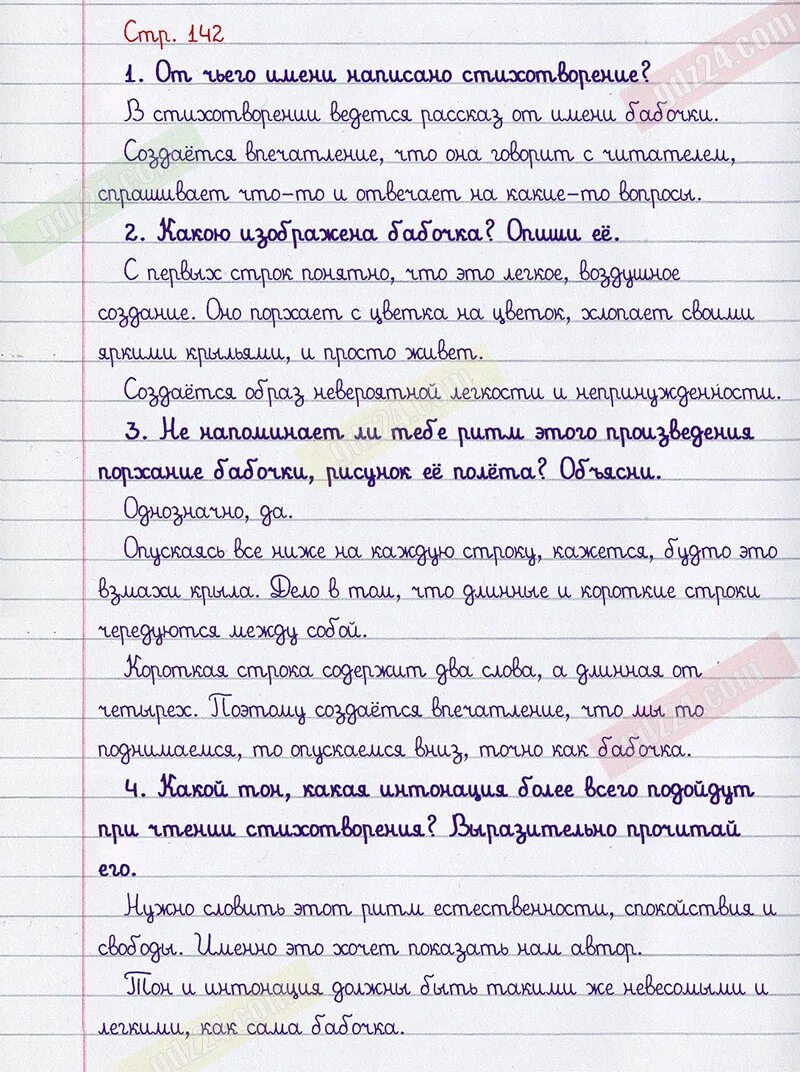 Стр. 142
1. От чьего имени написано стихотворение?
В стихотворении ведется рассказ от имени бабочки.
Создаётся впечатление, что она говорит с читателем,
спрашивает что-то и отвечает на какие-то вопросы.
2. Какою изображена бабочка? Опиши её.
С первых строк понятно, что это легкое, воздушное
создание. Оно порхает с цветка на цветок, хлопает своими
яркими крыльями, и просто живет.
Создаётся образ невероятной легкости и непринужденности.
3. Не напоминает ли тебе ритм этого произведения
порхание бабочки, рисунок её полёта? Объясни.
Однозначно, да.
Опускаясь все ниже на каждую строку, кажется, будто это
взмахи крыла. Дело в том, что длинные и короткие строки
чередуются между собой.
Короткая строка содержит два слова, а длинная от
четырех. Поэтому создаётся впечатление, что мы то
поднимаемся, то опускаемся вниз, точно как бабочка.
4. Какой тон, какая интонация более всего подойдут
при чтении стихотворения? Выразительно прочитай
его.
Нужно словить этот ритм естественности, спокойствия и
свободы. Именно это хочет показать нам автор.
Тон и интонация должны быть такими же невесомыми и
легкими, как сама бабочка.
gdz24.com
gdz24.com
gdz24.com
gdz24.com
gdz24.com